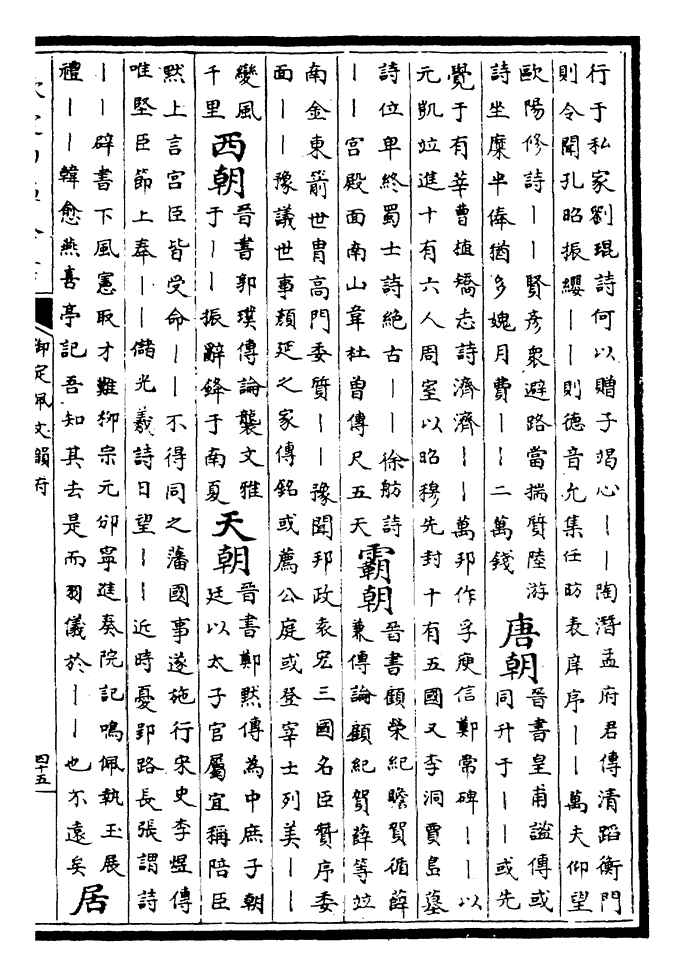 行于私家劉琨詩何以贈子竭心丨丨陶潛孟府君傳清蹈衡門
則令聞孔昭振纓丨丨則德音允集任昉表庠序丨丨萬夫仰望
歐陽修詩丨丨賢彥衆避路當揣質陸游
詩坐糜半俸猶多媿月費丨丨二萬錢
唐朝
晉書皇甫謐傳或
同升于丨丨或先
覺于有莘曹植矯志詩濟濟丨丨萬邦作孚庾信鄭常碑丨丨以
元凱竝進十有六人周室以昭穆先封十有五國又李洞賈島墓
詩位卑終蜀士詩絕古丨丨徐舫詩
丨丨宮殿面南山韋杜曾傳尺五天
霸朝
晉書顧榮紀瞻賀循薛
兼傳論顧紀賀薛等竝
南金東箭世胄高門委質丨丨豫聞邦政袁宏三國名臣贊序委
面丨丨豫議世事顏延之家傳銘或薦公庭或登宰士列美丨丨
變風
千里
西朝
晉書郭璞傳論襲文雅
于丨丨振辭鋒于南夏
天朝
晉書鄭默傳為中庶子朝
廷以太子官屬宜稱陪臣
黙上言宮臣皆受命丨丨不得同之藩國事遂施行宋史李煜傳
唯堅臣節上奉丨丨儲光羲詩日望丨丨近時憂郢路長張謂詩
丨丨辟書下風憲取才難柳宗元邠寧進奏院記鳴佩執玉展
禮丨丨韓愈燕喜亭記吾知其去是而羽儀於丨丨也不遠矣
居
御定佩文韻府
四十五